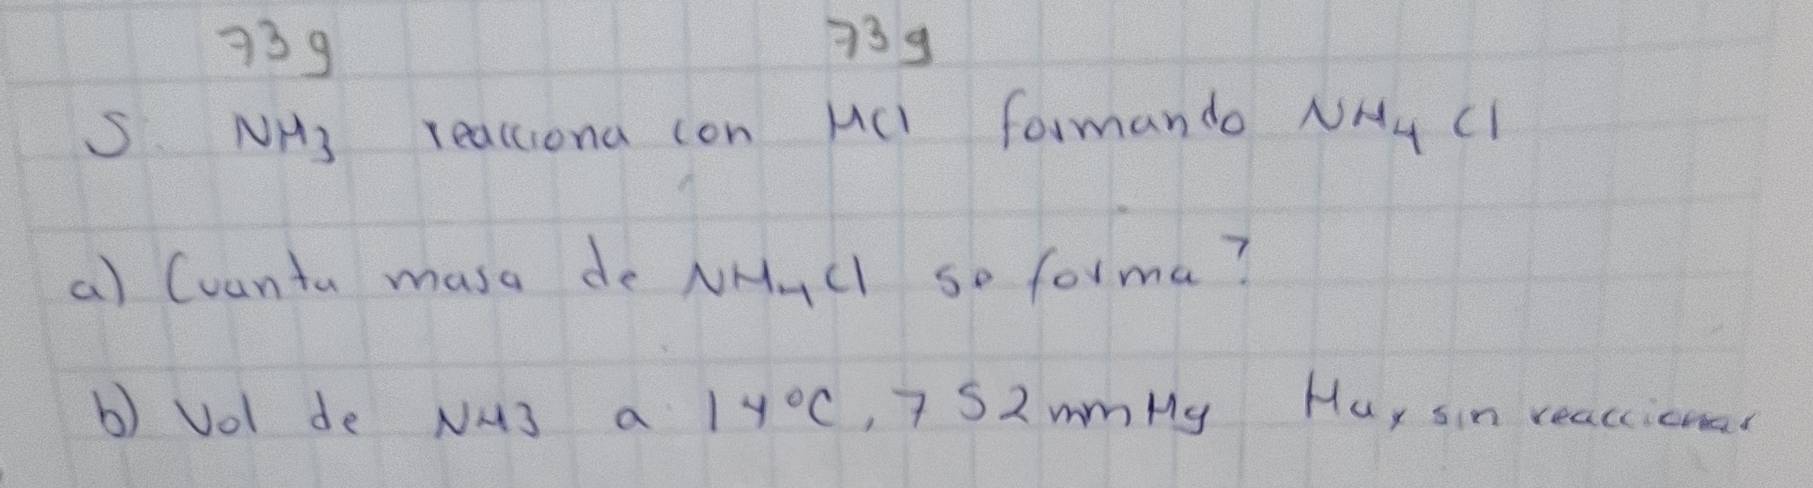 73g 73g
5. NH3 reacciona con HCl formando NH4Cl
a) Cuanta masa de NH4Cl se forma?
b) Vol de NH3 a 14°C, 752 mmHg Hay sin reaccionar